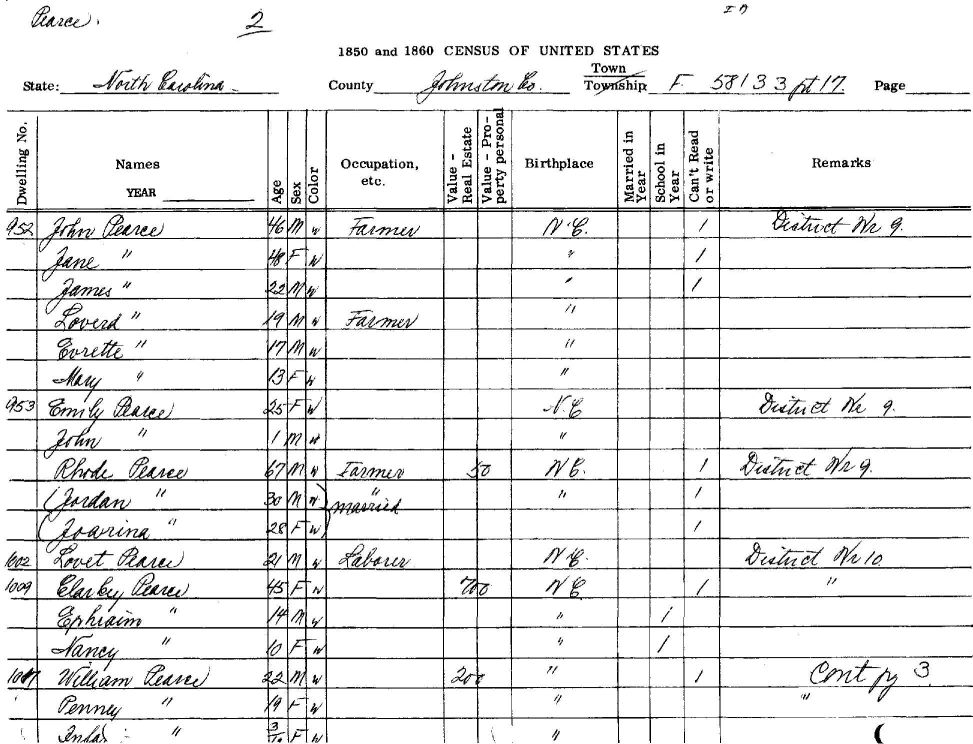 Pearce. 2
1850 and 1860 CENSUS OF UNITED STATES
State: North Carolina County Johnston Co. Town Township F. 58133 pt 17. Page
Dwelling No. Names YEAR Age Sex Color Occupation, etc. Value - Real Estate Value - Property personal Birthplace Married in Year School in Year Can't Read or write Remarks
952 John Pearce 46 M W Farmer N.C. 1 District Nr 9.
Jane " 48 F W " 1
James " 22 M W " 1
Loverd " 19 M W Farmer "
Evrette " 17 M W "
Mary " 13 F W "
953 Emily Pearce 25 F W N.C District Nr 9.
John " 1 M W "
Rhode Pearce 67 M W Farmer 50 N C. 1 District Nr 9.
(Jordan " 30 M W) " married " 1
(Joarina " 28 F W) 1
1002 Lovet Pearce 21 M W Laborer N C. District Nr 10
1009 Clarkey Pearce 45 F W 700 N C 1 "
Ephraim " 14 M W " 1
Nancy " 10 F W " 1
William Pearce 22 M W 200 " 1 Cont pg 3.
Penney " 19 F W " "
" 3/12 F W "